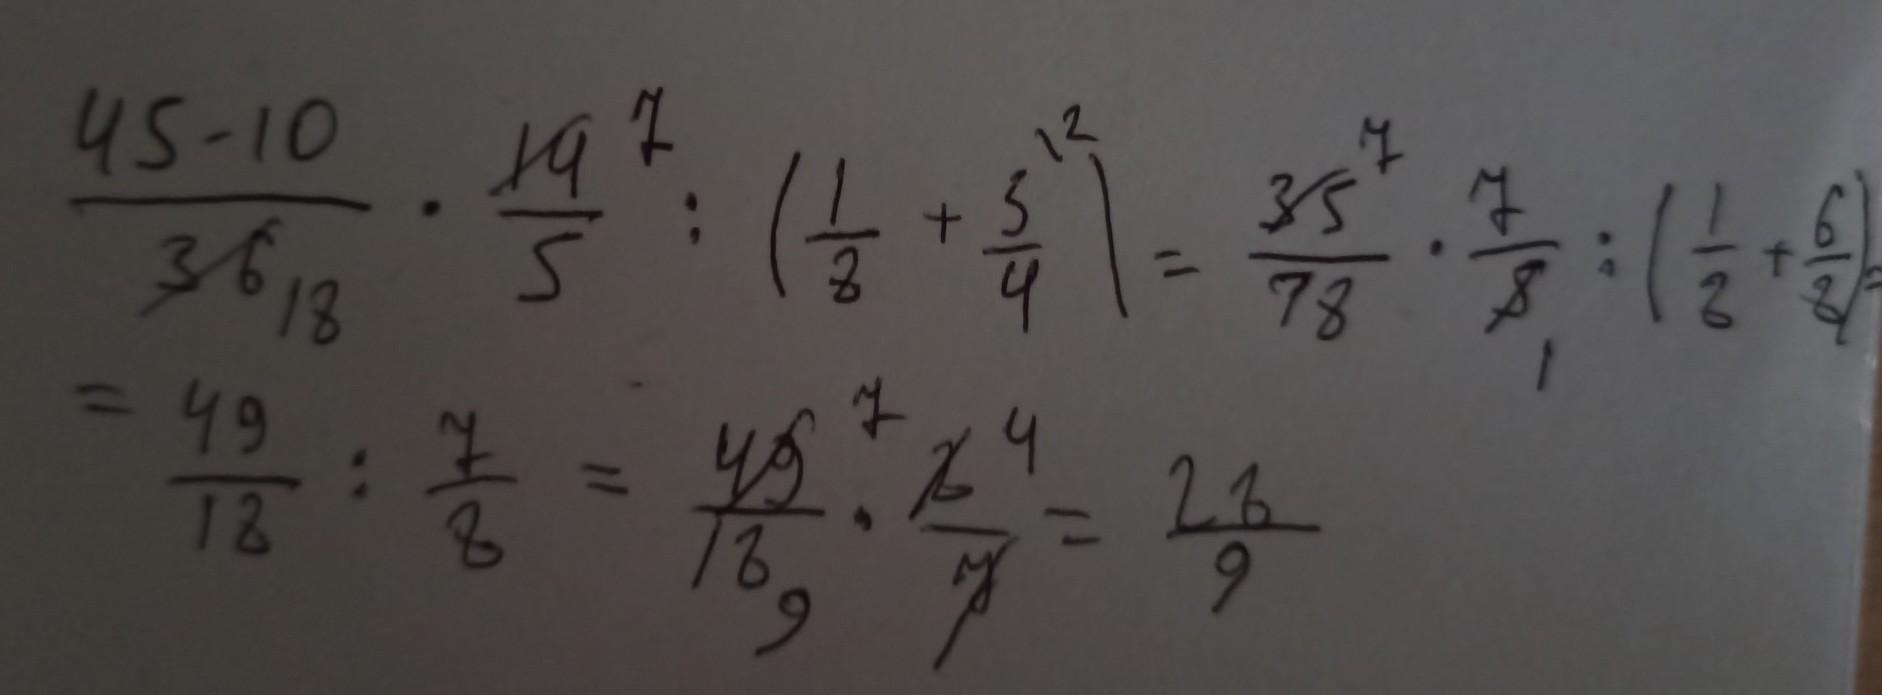 45-10/36 18 · 14/5 7 : (1/8 + 3/4 \2) = 35/18 7 · 7/5 1 : (1/8 + 6/8) =
= 49/18 : 7/8 = 49/18 7 9 · 8/7 4 = 28/9